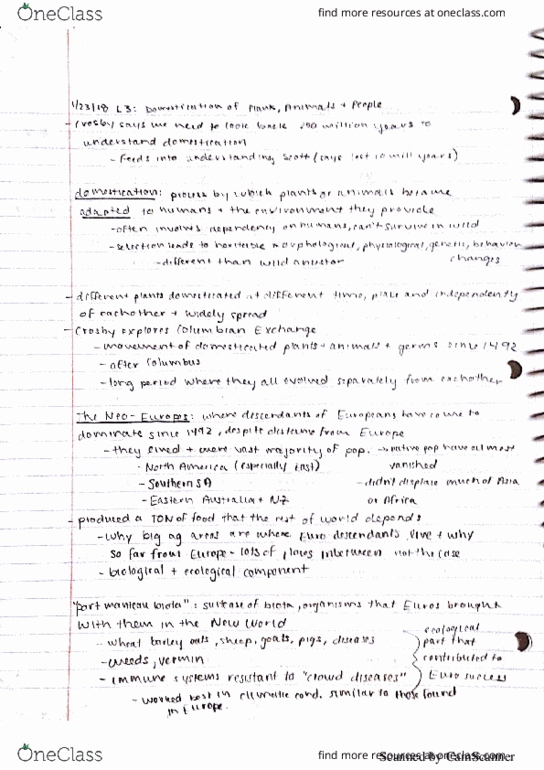 OneClass
find more resources at oneclass.com
1/23/18 L3: Domestication of Plants, Animals + People
- Crosby says we need to look back 180 million years to
understand domestication
- feeds into understanding Scott (says last 10 mill years)
domestication: process by which plants or animals become
adapted to humans + the environment they provide
- often involves dependency on humans, can't survive in wild
- selection leads to heritable morphological, physiological, genetic, behavior
changes
- different than wild ancestor
- different plants domesticated at different time, place and independently
of eachother + widely spread
- Crosby explores Columbian Exchange
- movement of domesticated plants + animals + germs since 1492
- after Columbus
- long period where they all evolved separately from eachother
The Neo-Europes: where descendants of Europeans have come to
dominate since 1492, despite distance from Europe
- they and were vast majority of pop. → native pop have almost
vanished
- North America (especially East)
- Southern SA
- Eastern Australia + NZ
- didn't displace much of Asia
or Africa
- produced a TON of food that the rest of world depends
- why big ag areas are where Euro descendants live + why
so far from Europe - lots of places inbetween not the case
- biological + ecological component
"portmanteau biota": suitcase of biota, organisms that Euros brought
with them in the New World
- wheat barley oats, sheep, goats, pigs, diseases
- weeds, vermin
- immune systems resistant to "crowd diseases"
ecological
part that
contributed to
Euro success
- worked best in climatic cond. similar to those found
in Europe.
OneClass
find more resources at oneclass.com
Scanned by CamScanner